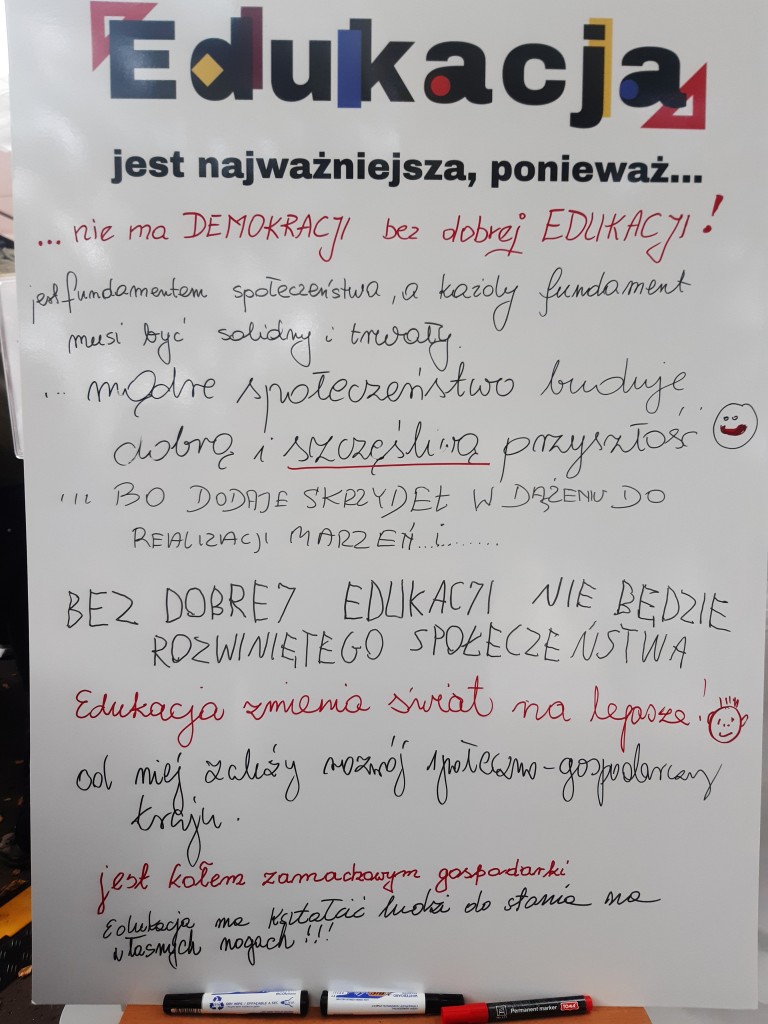 Edukacja
jest najważniejsza, ponieważ...
... nie ma DEMOKRACJI bez dobrej EDUKACJI!
jest fundamentem społeczeństwa, a każdy fundament
musi być solidny i trwały.
... mądre społeczeństwo buduje
dobrą i szczęśliwą przyszłość
... BO DODAJE SKRZYDEŁ W DĄŻENIU DO
REALIZACJI MARZEŃ...i........
BEZ DOBREJ EDUKACJI NIE BĘDZIE
ROZWINIĘTEGO SPOŁECZEŃSTWA
Edukacja zmienia świat na lepsze!
od niej zależy rozwój społeczno-gospodarczy
kraju.
jest kołem zamachowym gospodarki
Edukacja ma kształcić ludzi do stania na
własnych nogach!!!
Permanent marker